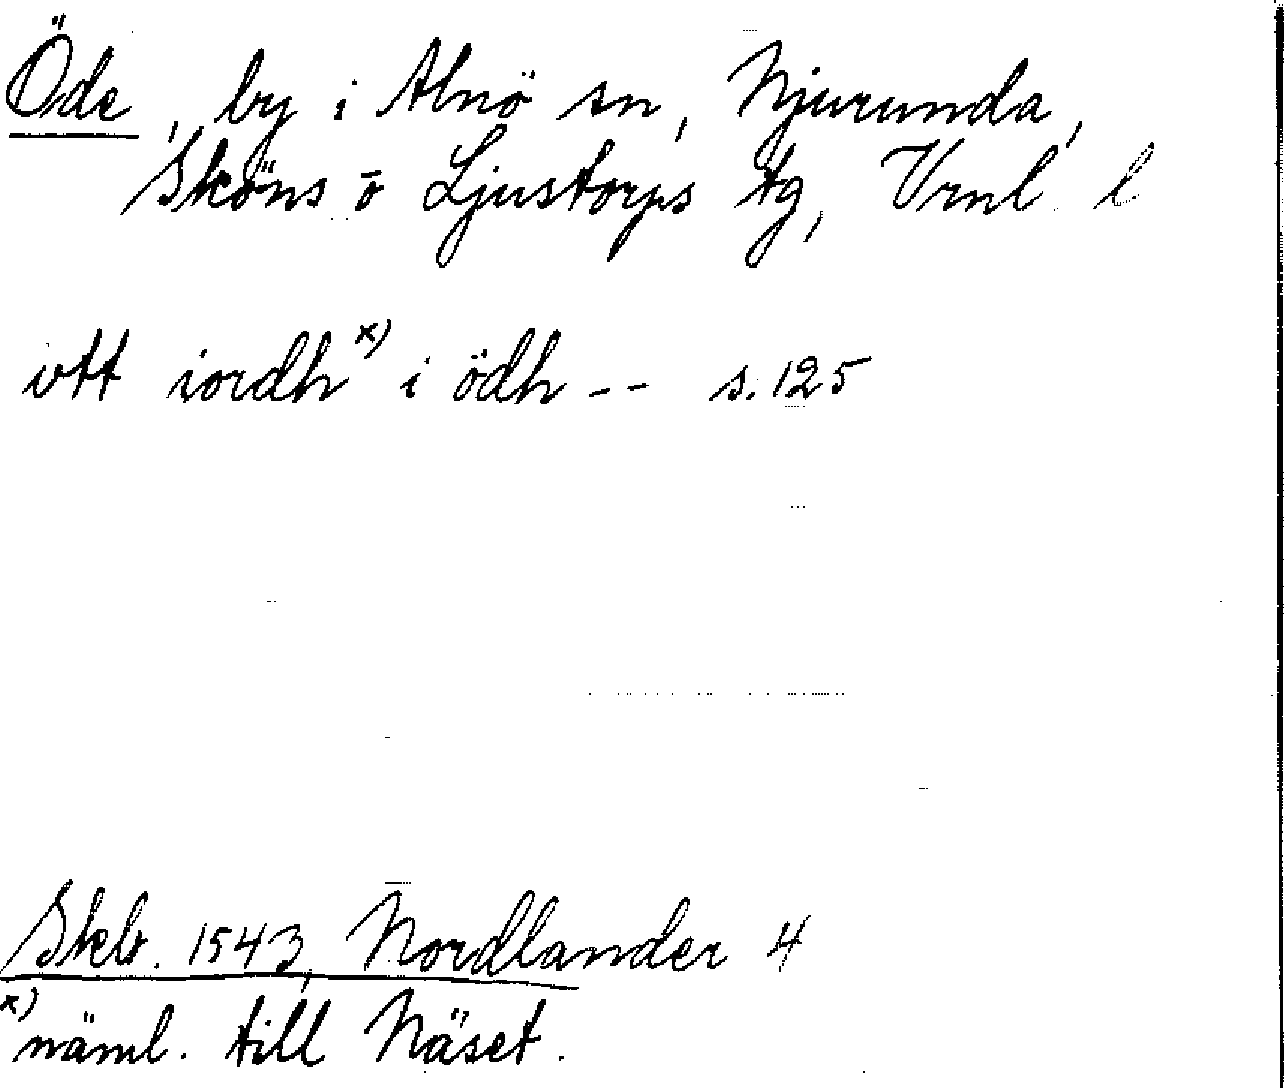 Öde, by i Alnö sn, Njurunda,
Sköns o Ljustorps tg, Vrnl l
vtt iordh x) i ödh -- s. 125
Skb. 1543, Nordlander 4
x) näml. till Näset.